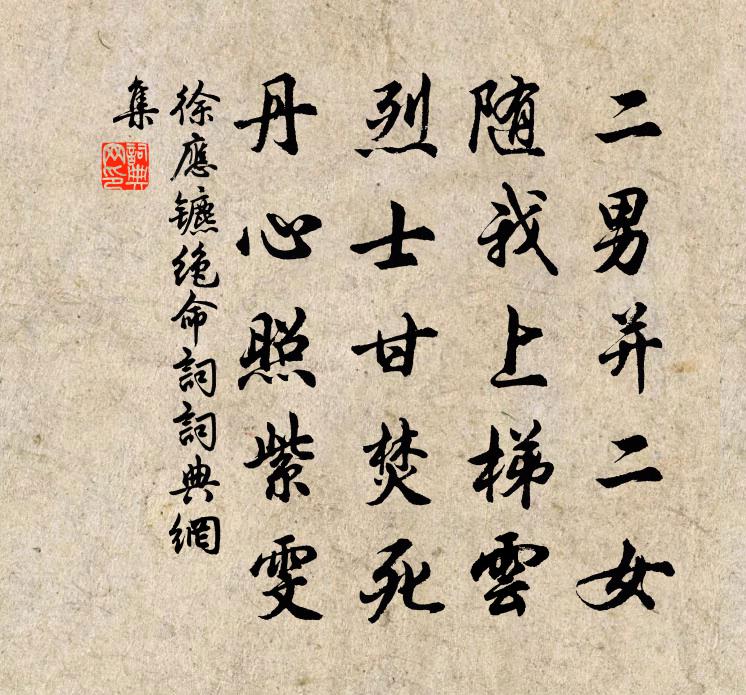 二男并二女
随我上梯雲
烈士甘焚死
丹心照紫雯
徐應镳绝命詞詞典網
集
詞典
网印